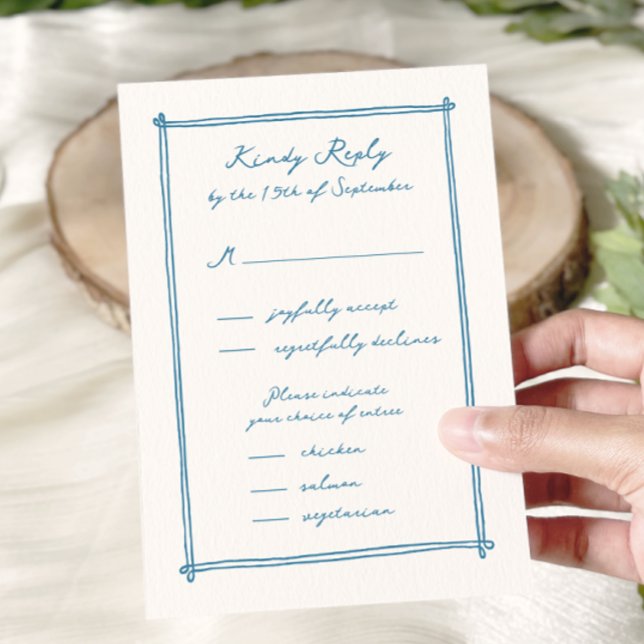 Kindy Reply
by the 15th of September
M
joyfully accept
regretfully declines
Please indicate
your choice of entree
chicken
salmon
vegetarian